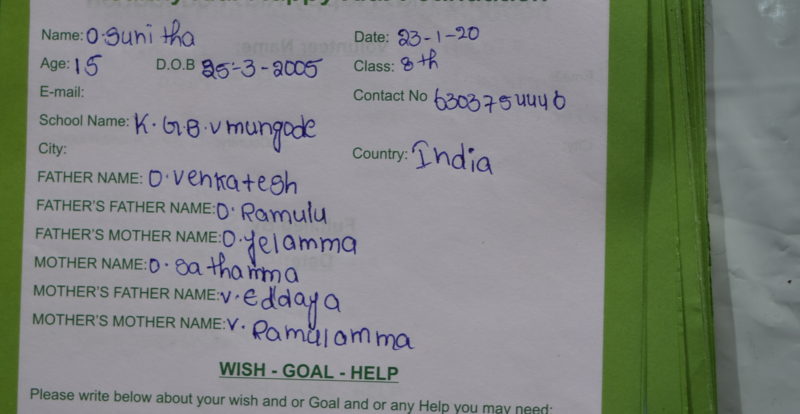 Name: O. Sunitha Date: 23-1-20
Age: 15 D.O.B 25-3-2005 Class: 8th
E-mail: Contact No 6303754446
School Name: K.G.B.V mungode
City: Country: India
FATHER NAME: O. Venkatesh
FATHER'S FATHER NAME: O. Ramulu
FATHER'S MOTHER NAME: O. Yelamma
MOTHER NAME: O. Sathamma
MOTHER'S FATHER NAME: V. Eddaya
MOTHER'S MOTHER NAME: V. Ramulamma
WISH - GOAL - HELP
Please write below about your wish and or Goal and or any Help you may need: